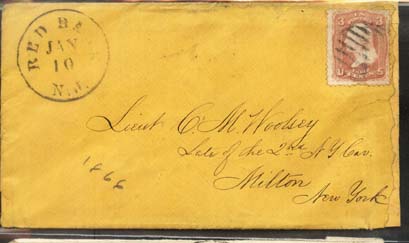 RED BA
JAN
10
N.J.
3 3
U S
Lieut C. M. Woolsey
Late of the 2nd N Y Cav.
Milton
New York
1866